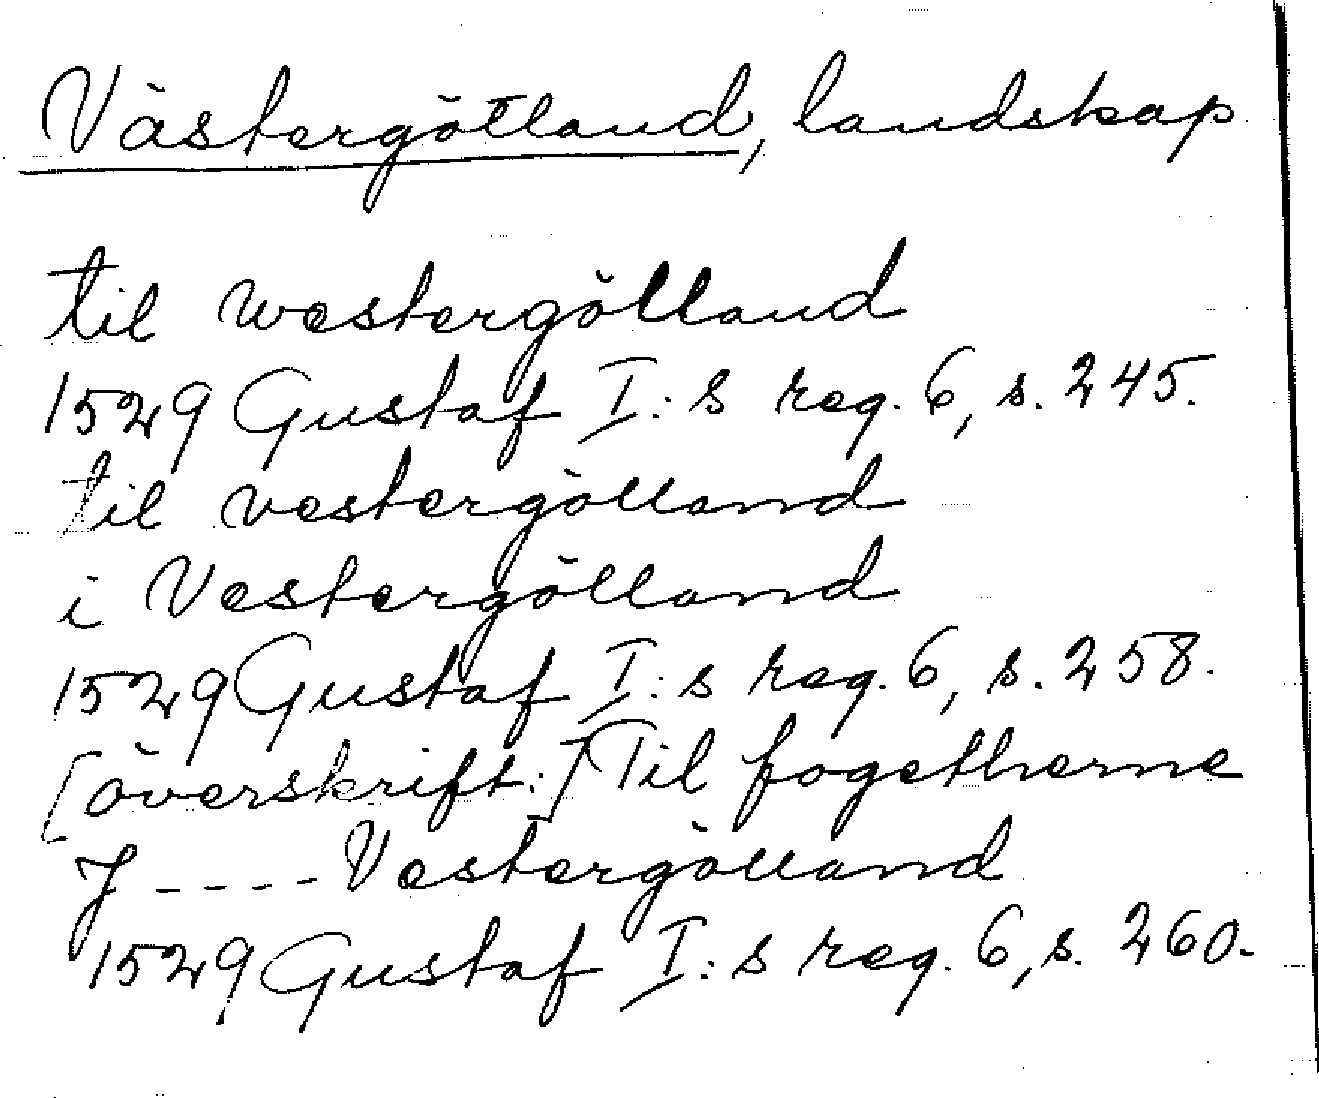 Västergötland, landskap
til westergölland
1529 Gustaf I:s reg. 6, s. 245.
til vestergölland
i Vestergölland
1529 Gustaf I:s reg. 6, s. 258.
[överskrift:] Til fogetherne
J ---- Vestergölland
1529 Gustaf I:s reg. 6, s. 260.